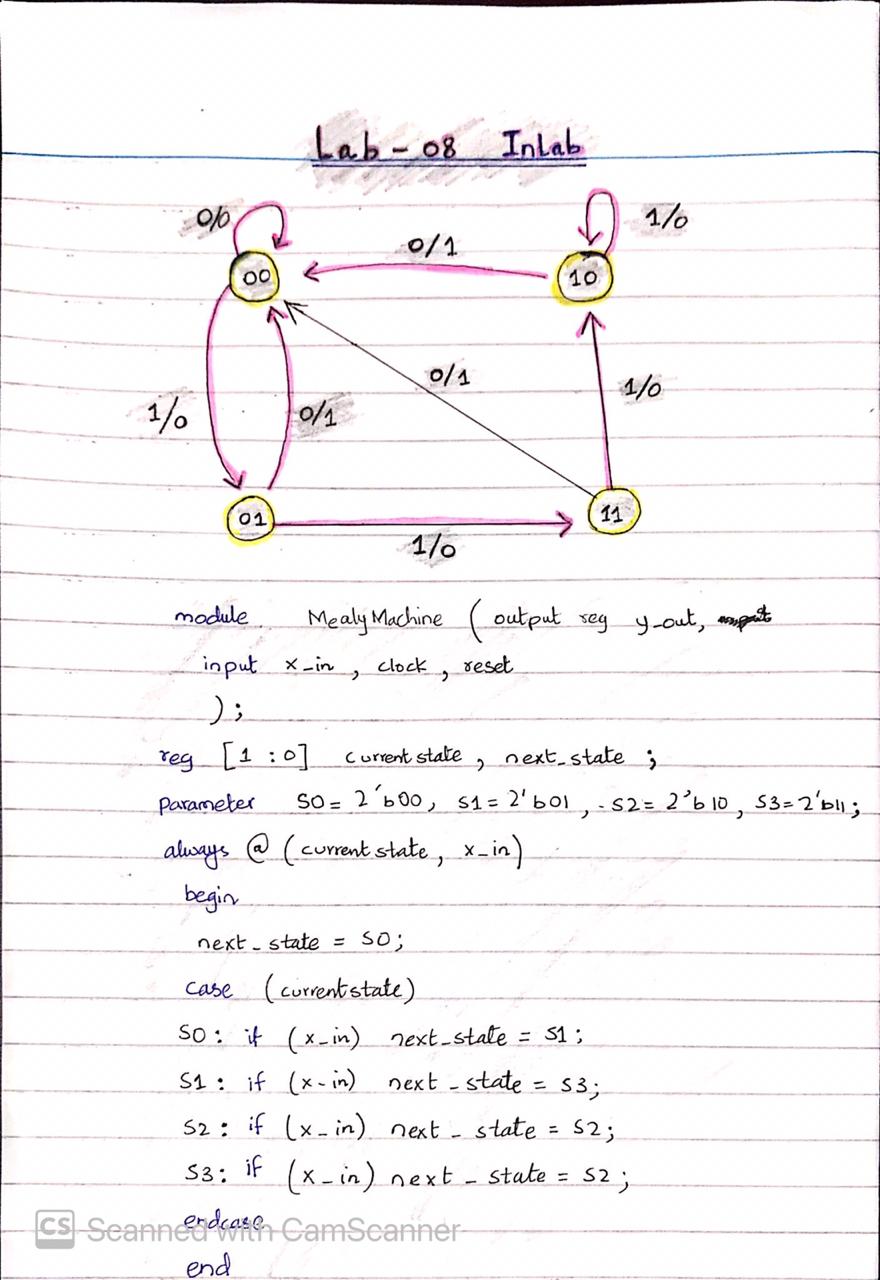 Lab - 08 Inlab
0/0
1/0
0/1
00
10
0/1
1/0
1/0
0/1
01
11
1/0
module MealyMachine ( output reg y_out,
input x_in , clock , reset
) ;
reg [1 : 0] currentstate , next_state ;
parameter S0 = 2'b00, S1 = 2'b01 , S2 = 2'b10 , S3 = 2'b11 ;
always @ ( currentstate , x_in )
begin
next_state = S0 ;
case (currentstate)
S0 : if (x_in) next_state = S1 ;
S1 : if (x_in) next_state = S3 ;
S2 : if (x_in) next_state = S2 ;
S3 : if (x_in) next_state = S2 ;
endcase
CS Scanned with CamScanner
end